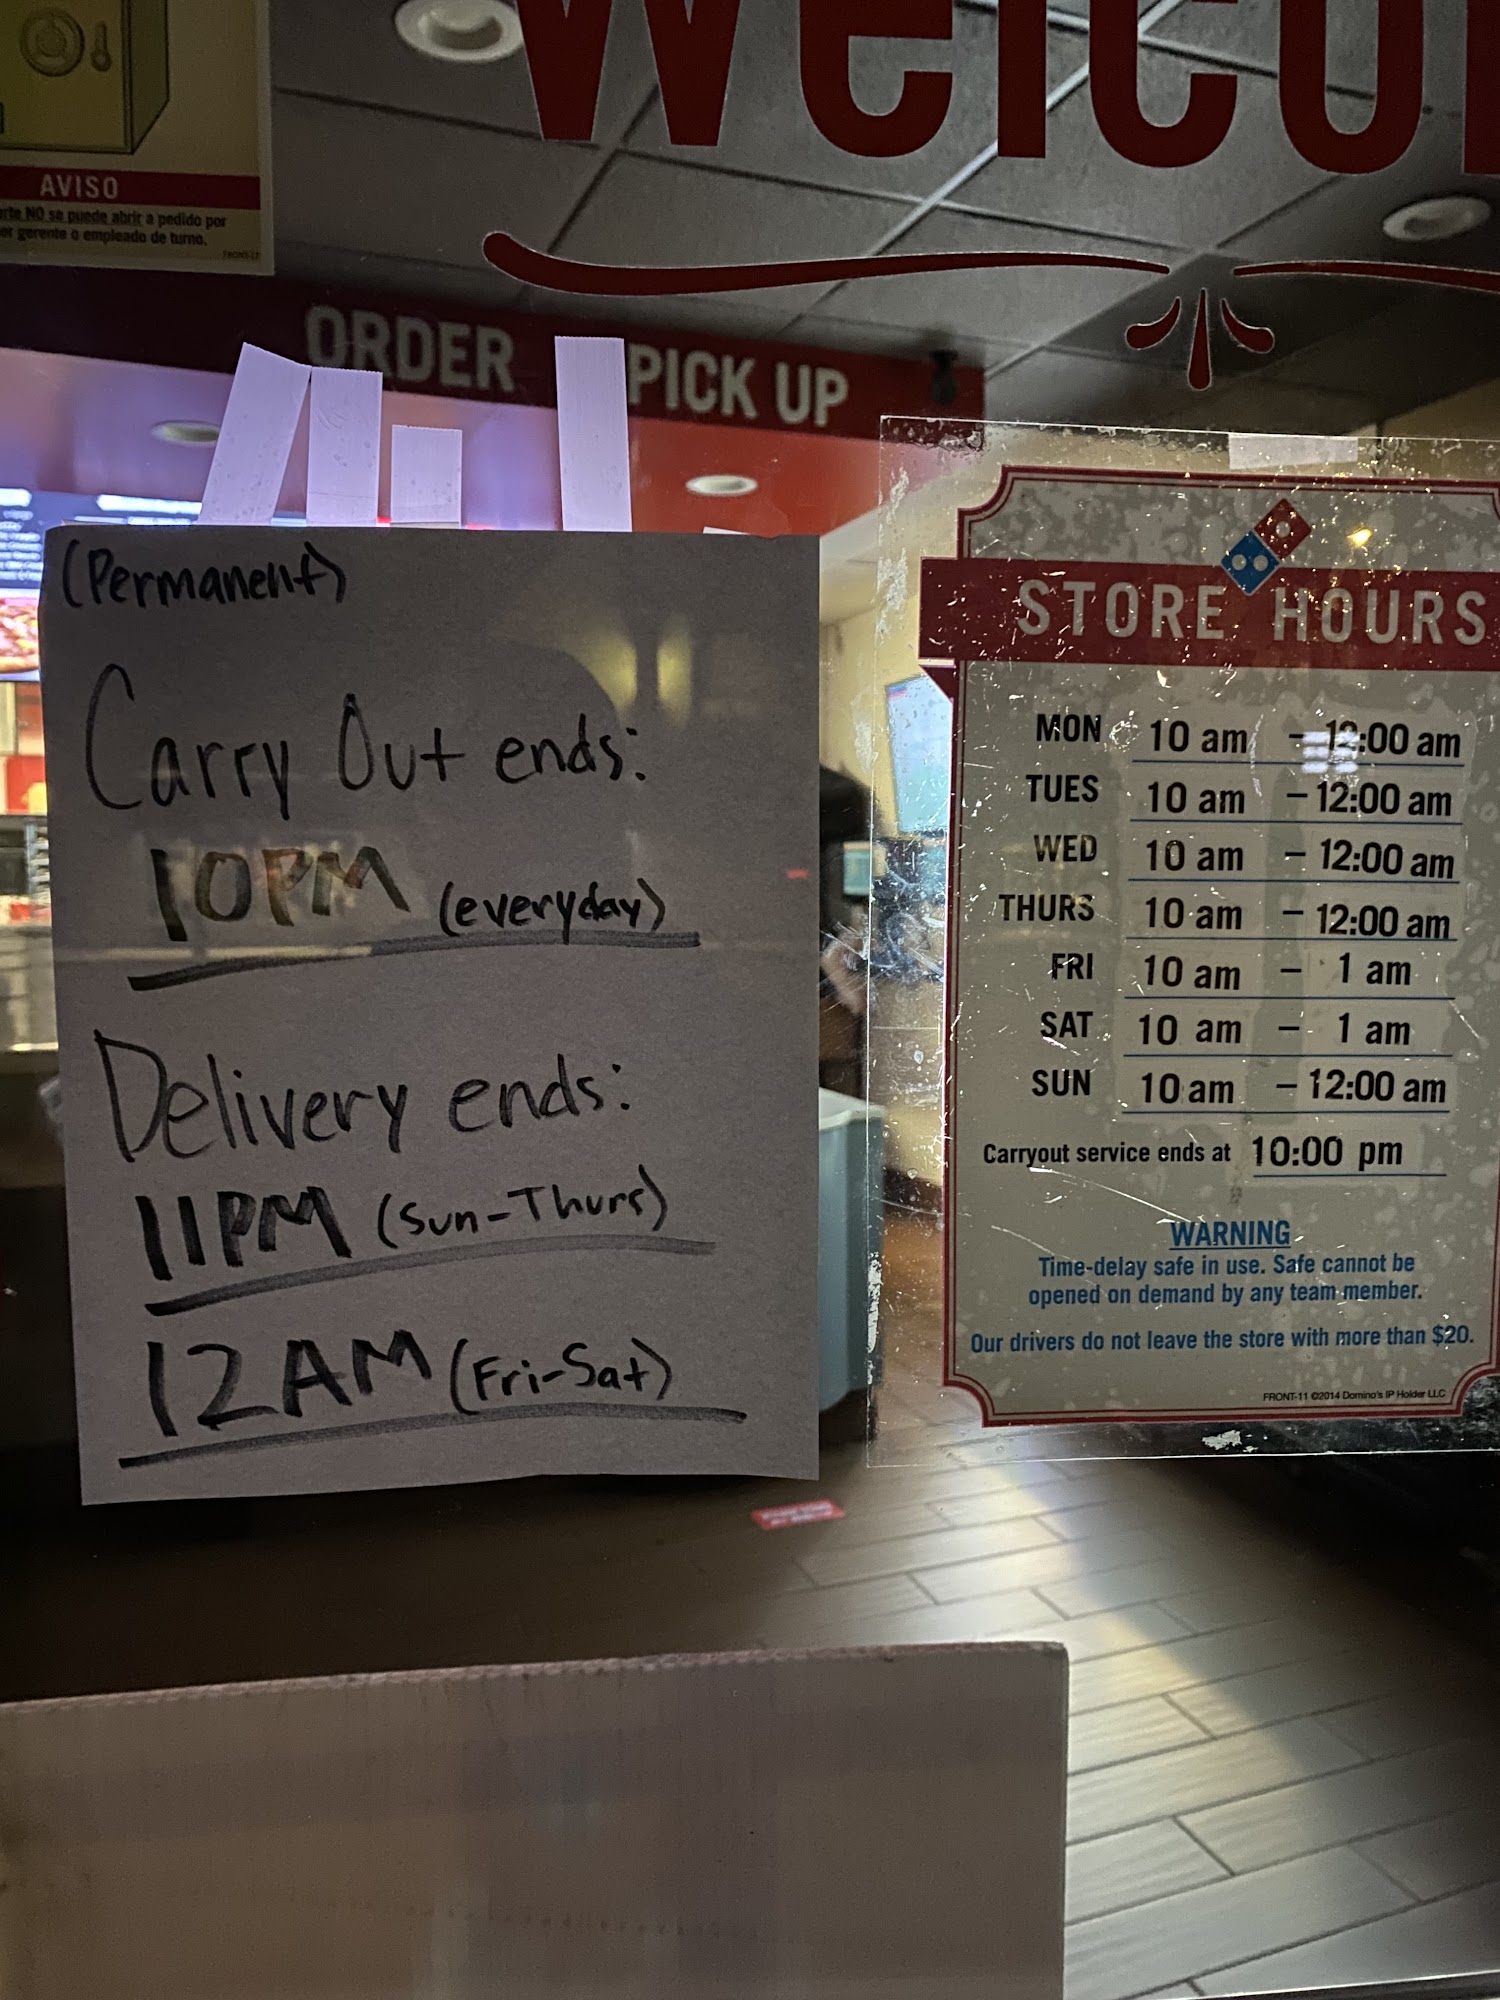 Welco
AVISO
NO se puede abrir a pedido por
gerente o empleado de turno.
FRONT-17
ORDER PICK UP
(Permanent)
Carry Out ends:
10PM (everyday)
Delivery ends:
11PM (Sun-Thurs)
12AM (Fri-Sat)
STORE HOURS
MON 10 am - 12:00 am
TUES 10 am - 12:00 am
WED 10 am - 12:00 am
THURS 10 am - 12:00 am
FRI 10 am - 1 am
SAT 10 am - 1 am
SUN 10 am - 12:00 am
Carryout service ends at 10:00 pm
WARNING
Time-delay safe in use. Safe cannot be
opened on demand by any team member.
Our drivers do not leave the store with more than $20.
FRONT-11 ©2014 Domino's IP Holder LLC